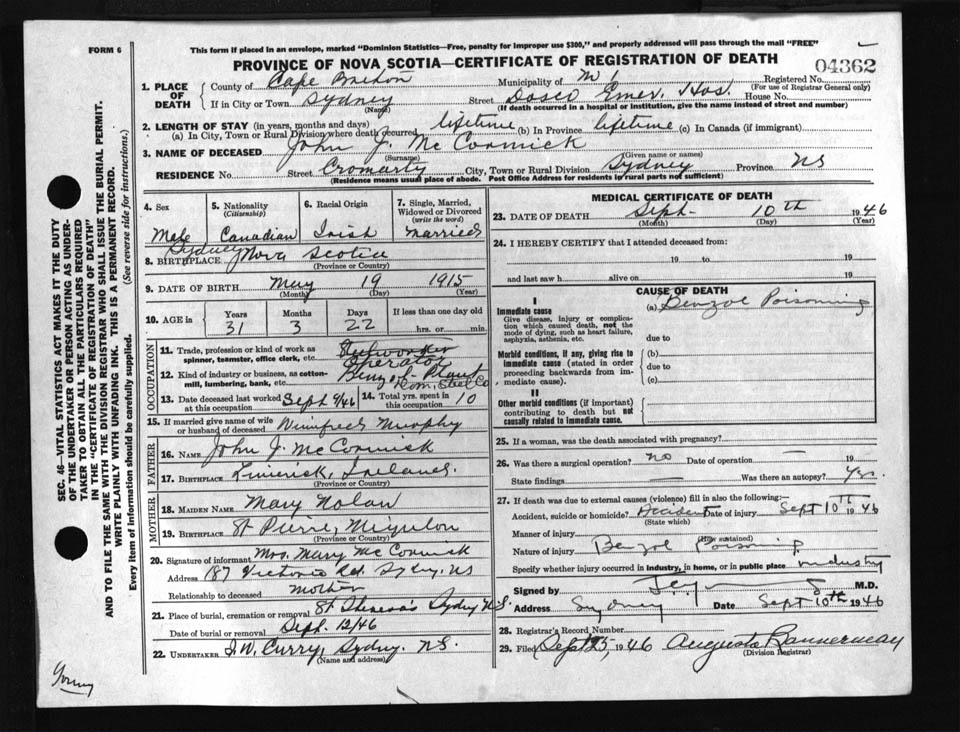 FORM 6
This form if placed in an envelope, marked "Dominion Statistics—Free, penalty for improper use $300," and properly addressed will pass through the mail "FREE"
PROVINCE OF NOVA SCOTIA—CERTIFICATE OF REGISTRATION OF DEATH
04362
1. PLACE OF DEATH
County of Cape Breton Municipality of Registered No.
(For use of Registrar General only)
If in City or Town Sydney Street Dosco Emer. Hos. House No.
(Name) (If death occurred in a hospital or institution, give the name instead of street and number)
2. LENGTH OF STAY (in years, months and days)
(a) In City, Town or Rural Division where death occurred lifetime (b) In Province lifetime (c) In Canada (if immigrant)
3. NAME OF DECEASED John J. McCormick
(Surname) (Given name or names)
RESIDENCE No. Street Cromarty City, Town or Rural Division Sydney Province NS
(Residence means usual place of abode. Post Office Address for residents in rural parts not sufficient)
4. Sex Male
5. Nationality (Citizenship) Canadian
6. Racial Origin Irish
7. Single, Married, Widowed or Divorced (write the word) Married
8. BIRTHPLACE Sydney Nova Scotia
(Province or Country)
9. DATE OF BIRTH May 19 1915
(Month) (Day) (Year)
10. AGE in Years 31 Months 3 Days 22 If less than one day old hrs. or min.
OCCUPATION
11. Trade, profession or kind of work as spinner, teamster, office clerk, etc. Steelworker Operator
12. Kind of industry or business, as cotton-mill, lumbering, bank, etc. Benzol Plant Dom. Steel Co
13. Date deceased last worked at this occupation Sept 9/46
14. Total yrs. spent in this occupation 10
15. If married give name of wife or husband of deceased Winnifred Murphy
FATHER
16. NAME John J. McCormick
17. BIRTHPLACE Limerick, Ireland.
(Province or Country)
MOTHER
18. MAIDEN NAME Mary Nolan
19. BIRTHPLACE St Pierre, Miquelon
(Province or Country)
20. Signature of informant Mrs. Mary McCormick
Address 187 Victoria Rd. Sydney, NS
Relationship to deceased Mother
21. Place of burial, cremation or removal St Theresa's Sydney N.S.
Date of burial or removal Sept. 12/46
22. UNDERTAKER J. W. Curry, Sydney. N.S.
(Name and address)
MEDICAL CERTIFICATE OF DEATH
23. DATE OF DEATH Sept. 10th 1946
(Month) (Day) (Year)
24. I HEREBY CERTIFY that I attended deceased from:
19 to 19
and last saw h alive on 19
CAUSE OF DEATH
I
Immediate cause
Give disease, injury or complication which caused death, not the mode of dying, such as heart failure, asphyxia, asthenia, etc.
(a) Benzol Poisoning
due to
Morbid conditions, if any, giving rise to immediate cause (stated in order proceeding backwards from immediate cause).
(b)
due to
(c)
II
Other morbid conditions (if important) contributing to death but not causally related to immediate cause.
25. If a woman, was the death associated with pregnancy? —
26. Was there a surgical operation? no Date of operation — 19
State findings — Was there an autopsy? Yes.
27. If death was due to external causes (violence) fill in also the following:—
Accident, suicide or homicide? Accident Date of injury Sept 10th 1946
(State which)
Manner of injury
(How sustained)
Nature of injury Benzol Poisoning
Specify whether injury occurred in industry, in home, or in public place industry
Signed by M.D.
Address Sydney Date Sept 10th 1946
28. Registrar's Record Number
29. Filed Sept 15, 1946 Augusta Bannerman
(Division Registrar)
SEC. 46—VITAL STATISTICS ACT MAKES IT THE DUTY OF THE UNDERTAKER OR PERSON ACTING AS UNDERTAKER TO OBTAIN ALL THE PARTICULARS REQUIRED IN THE "CERTIFICATE OF REGISTRATION OF DEATH" AND TO FILE THE SAME WITH THE DIVISION REGISTRAR WHO SHALL ISSUE THE BURIAL PERMIT.
WRITE PLAINLY WITH UNFADING INK. THIS IS A PERMANENT RECORD.
Every item of information should be carefully supplied. (See reverse side for instructions.)